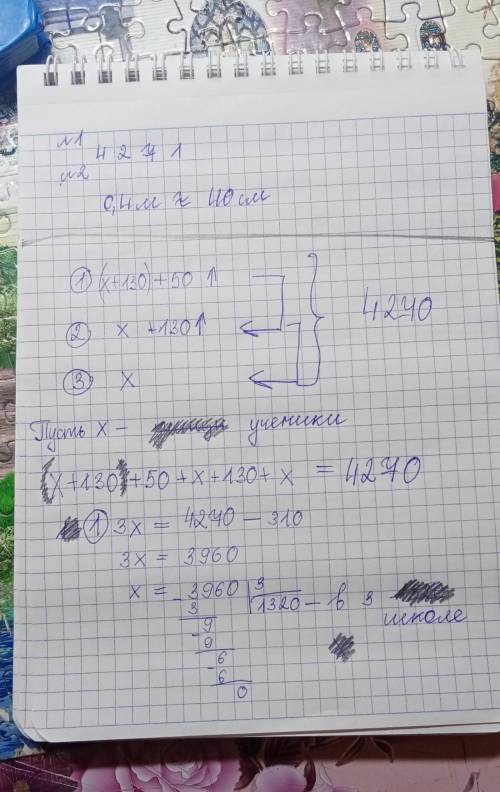 №1
4 2 7 1
№2
0,4м = 40см
① (x+130)+50 ↑
② x +130↑
③ x
4270
Пусть x - ученики
(x+130)+50+x+130+x = 4270
① 3x = 4270 - 310
3x = 3960
x = 3960 | 3
3 1320 - в 3
школе
- 9
9
- 6
6
0